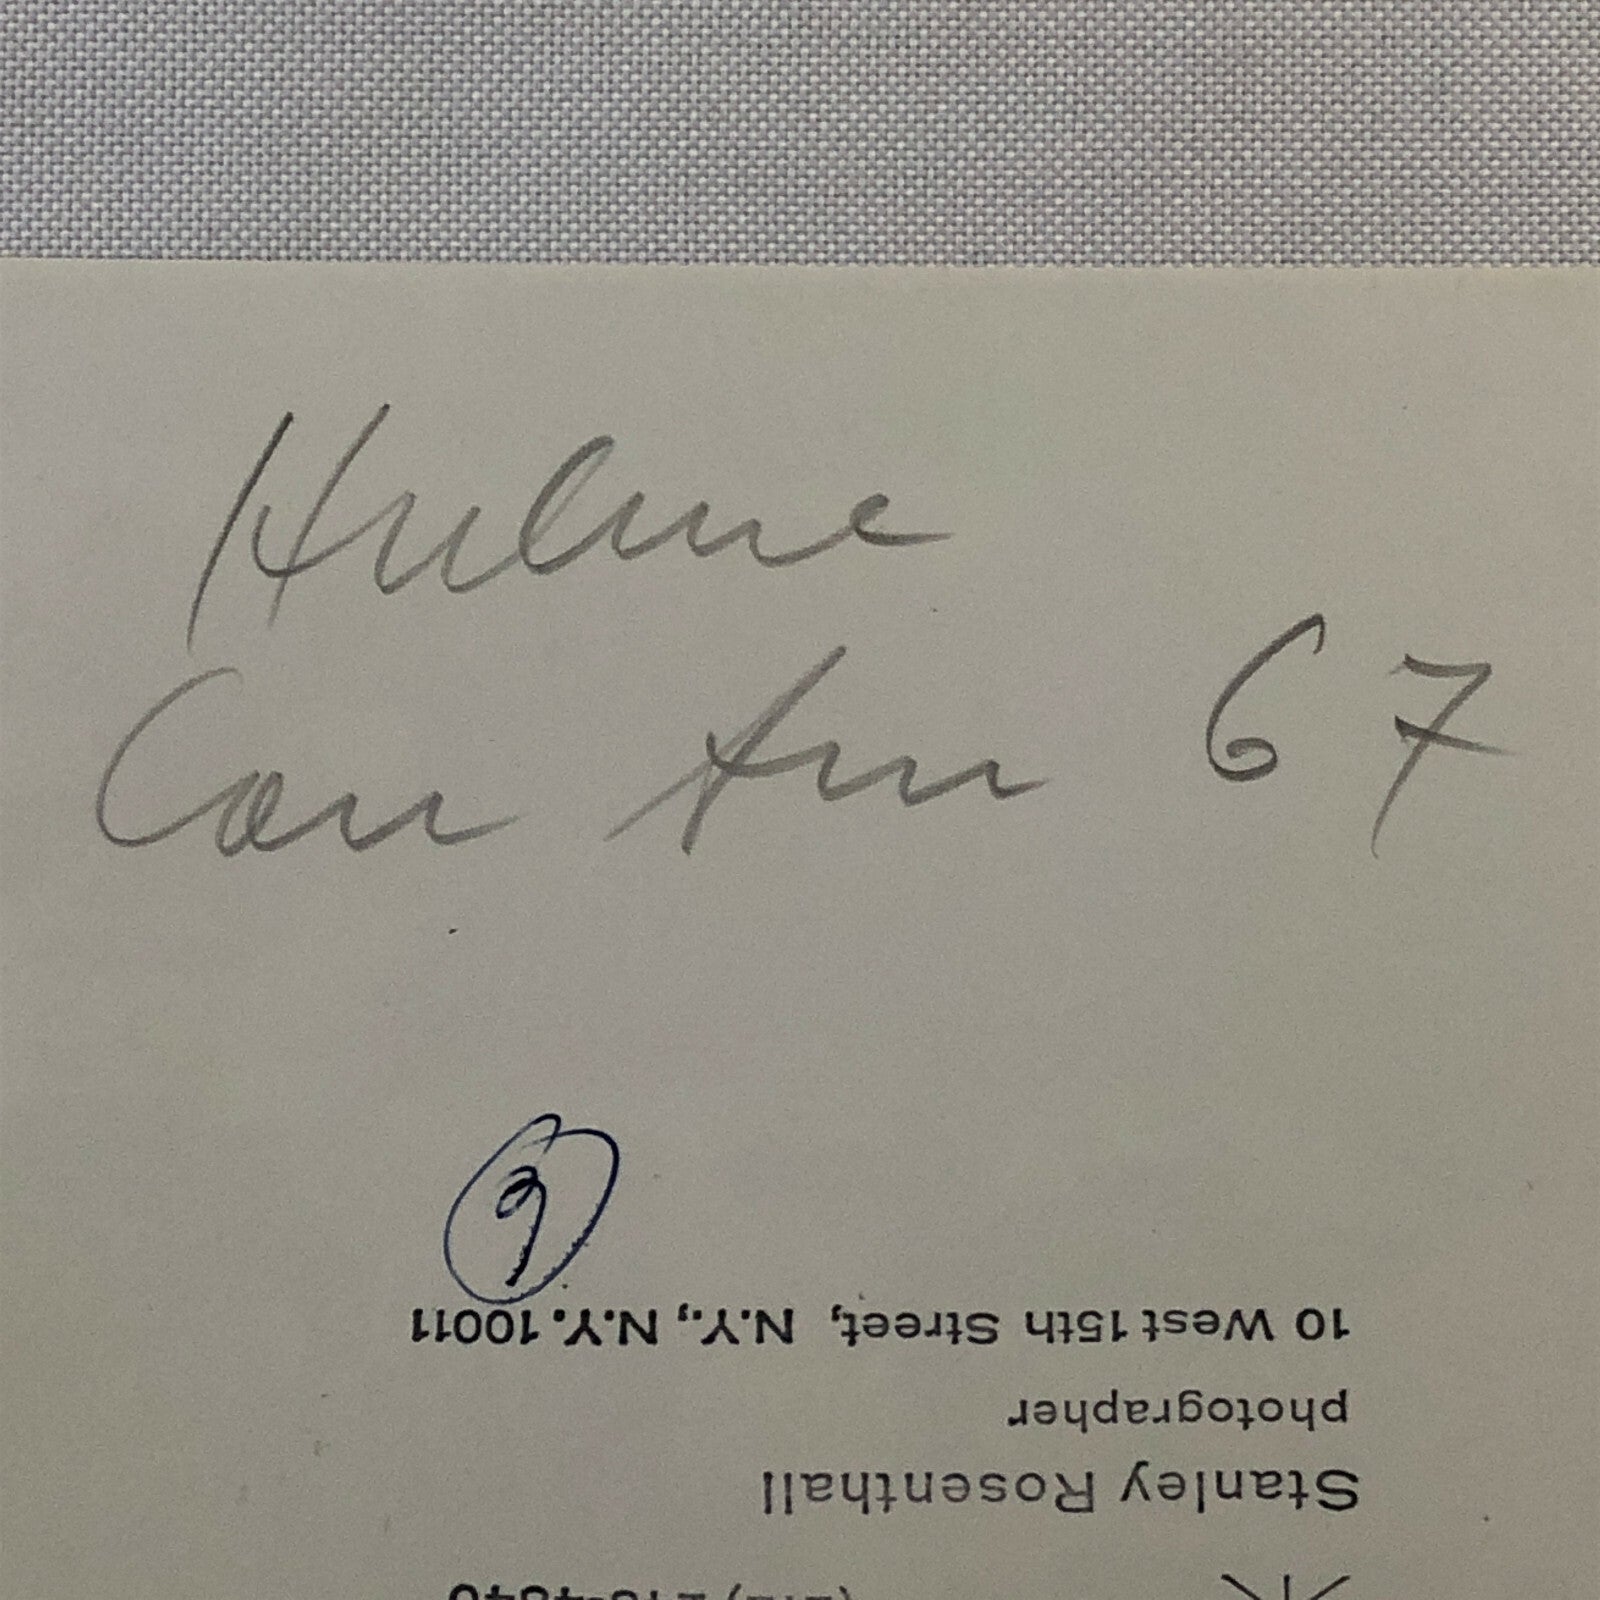 Hulme
Can Am 67
9
10 West 15th Street, N.Y., N.Y. 10011
photographer
Stanley Rosenthall